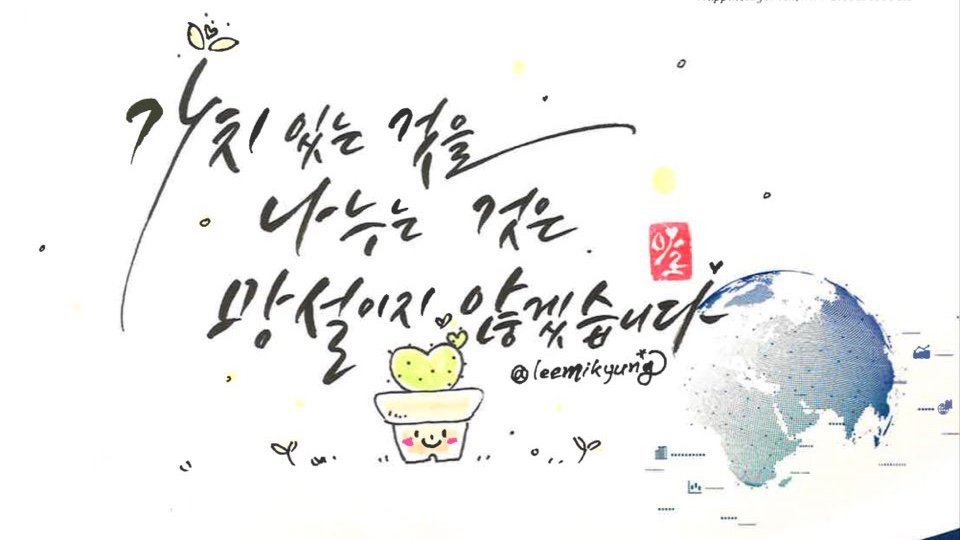 가치 있는 것을
나누는 것은
망설이지 않겠습니다
@leemikyung